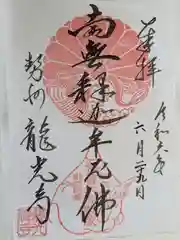 奉拝
令和六年
六月二九日
南無釈迦牟尼佛
勢州
龍光寺